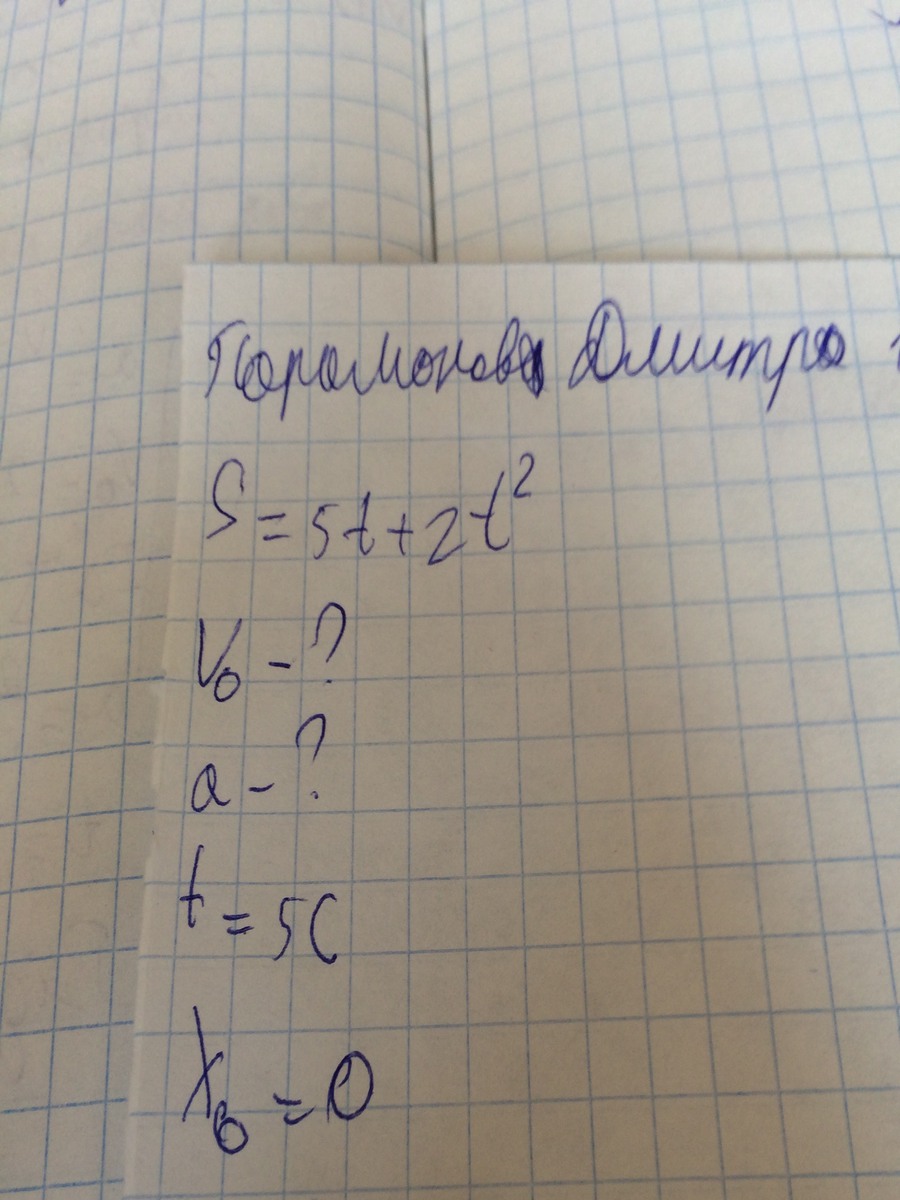 Парамонова Дмитра
S = 5t + 2t²
V₀ - ?
a - ?
t = 5с
X₀ = 0